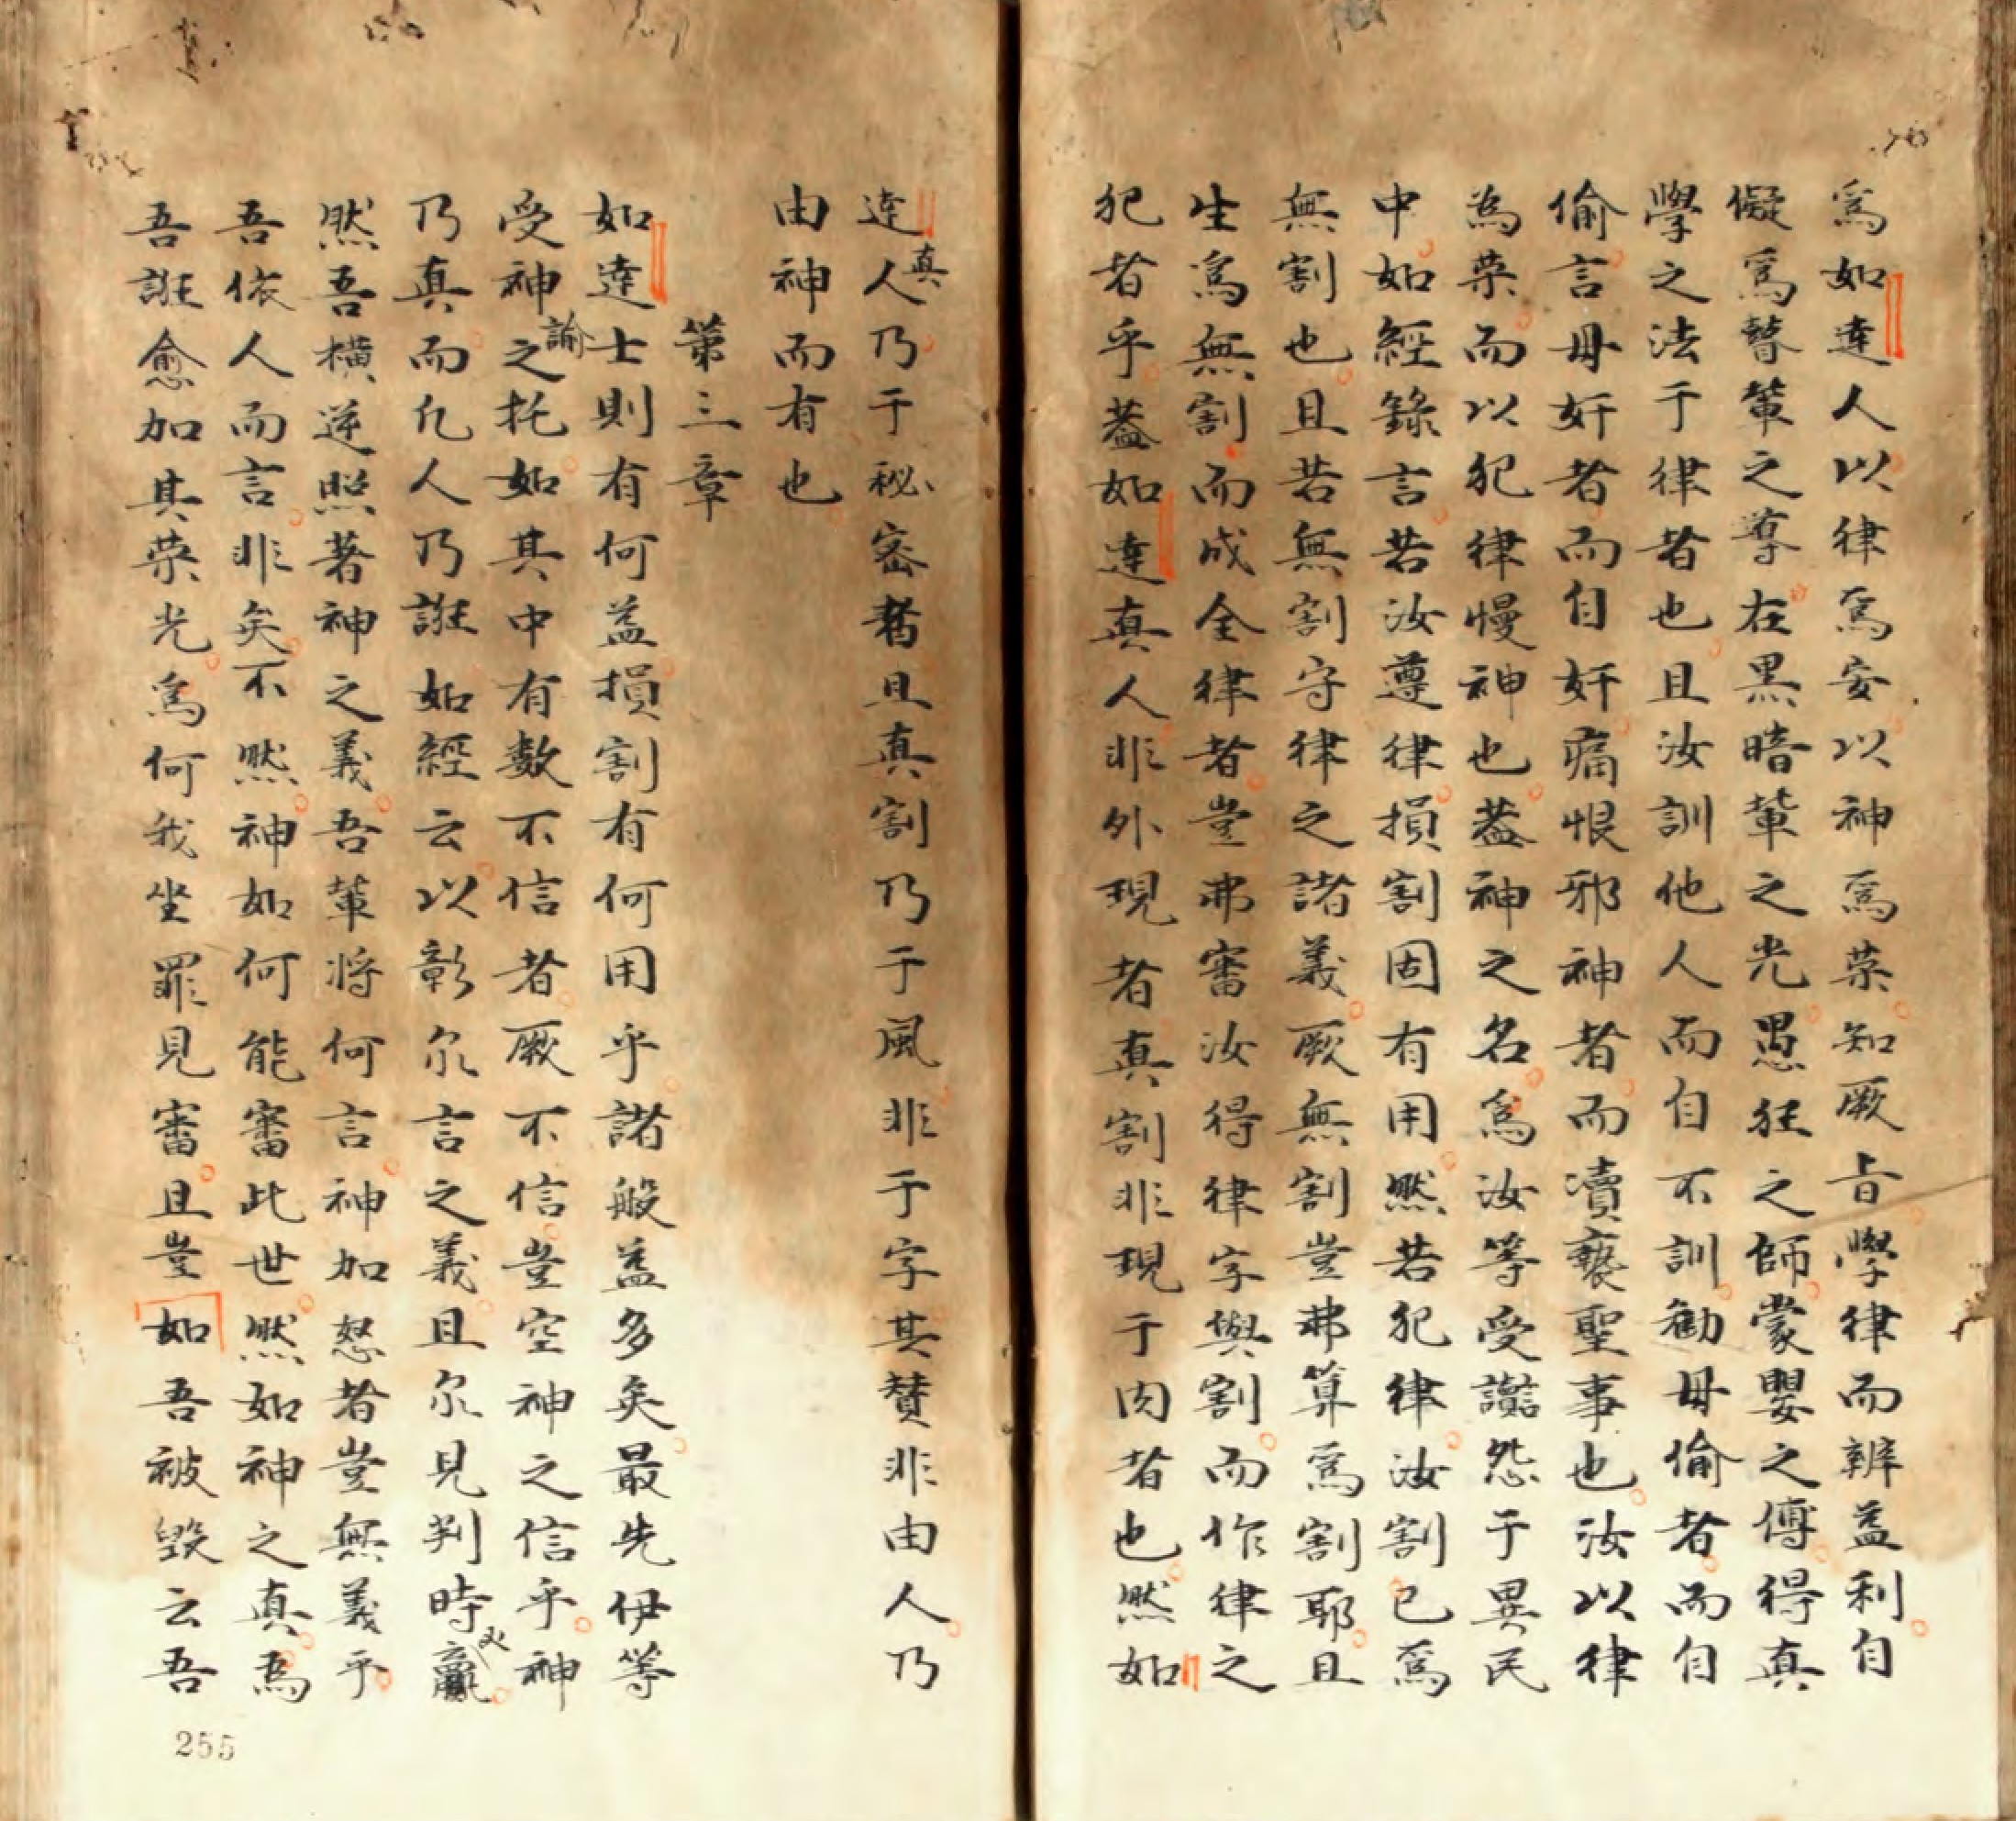 爲如達人以律爲安以神爲荣知厥旨學律而辨益利自
儗爲瞽輩之導在黒暗輩之光愚狂之師蒙嬰之傅得真
學之法于律者也且汝訓他人而自不訓勸毋偷者而自
偷言毋奸者而自奸痛恨邪神者而瀆褻聖事也汝以律
為荣而以犯律慢神也葢神之名爲汝等受讟怨于異民
中如經錄言若汝遵律損割固有用然若犯律汝割已爲
無割也且若無割守律之諸義厥無割豈弗算爲割耶且
生爲無割而成全律者豈弗審汝得律字與割而作律之
犯者乎葢如達真人非外現者真割非現于肉者也然如
達真人乃于秘密者且真割乃于風非于字其賛非由人乃
由神而有也
第三章
如達士則有何益損割有何用乎諸般益多矣最先伊等
受神諭之托如其中有数不信者厥不信豈空神之信乎神
乃真而凢人乃誑如經云以彰尔言之義且尔見判時必贏
然吾横逆照著神之義吾輩将何言神加怒者豈無義乎
吾依人而言非矣不然神如何能審此世然如神之真為
吾誑愈加其荣光爲何我坐罪見審且豈如吾被毀云吾
255